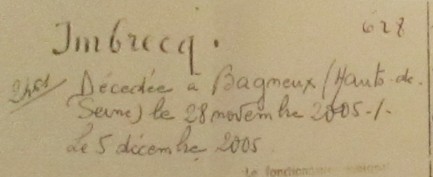 Imbrecq.
628
Décédée à Bagneux (Hauts-de-
Seine) le 28 novembre 2005-/-
Le 5 décembre 2005
Le fonctionnaire